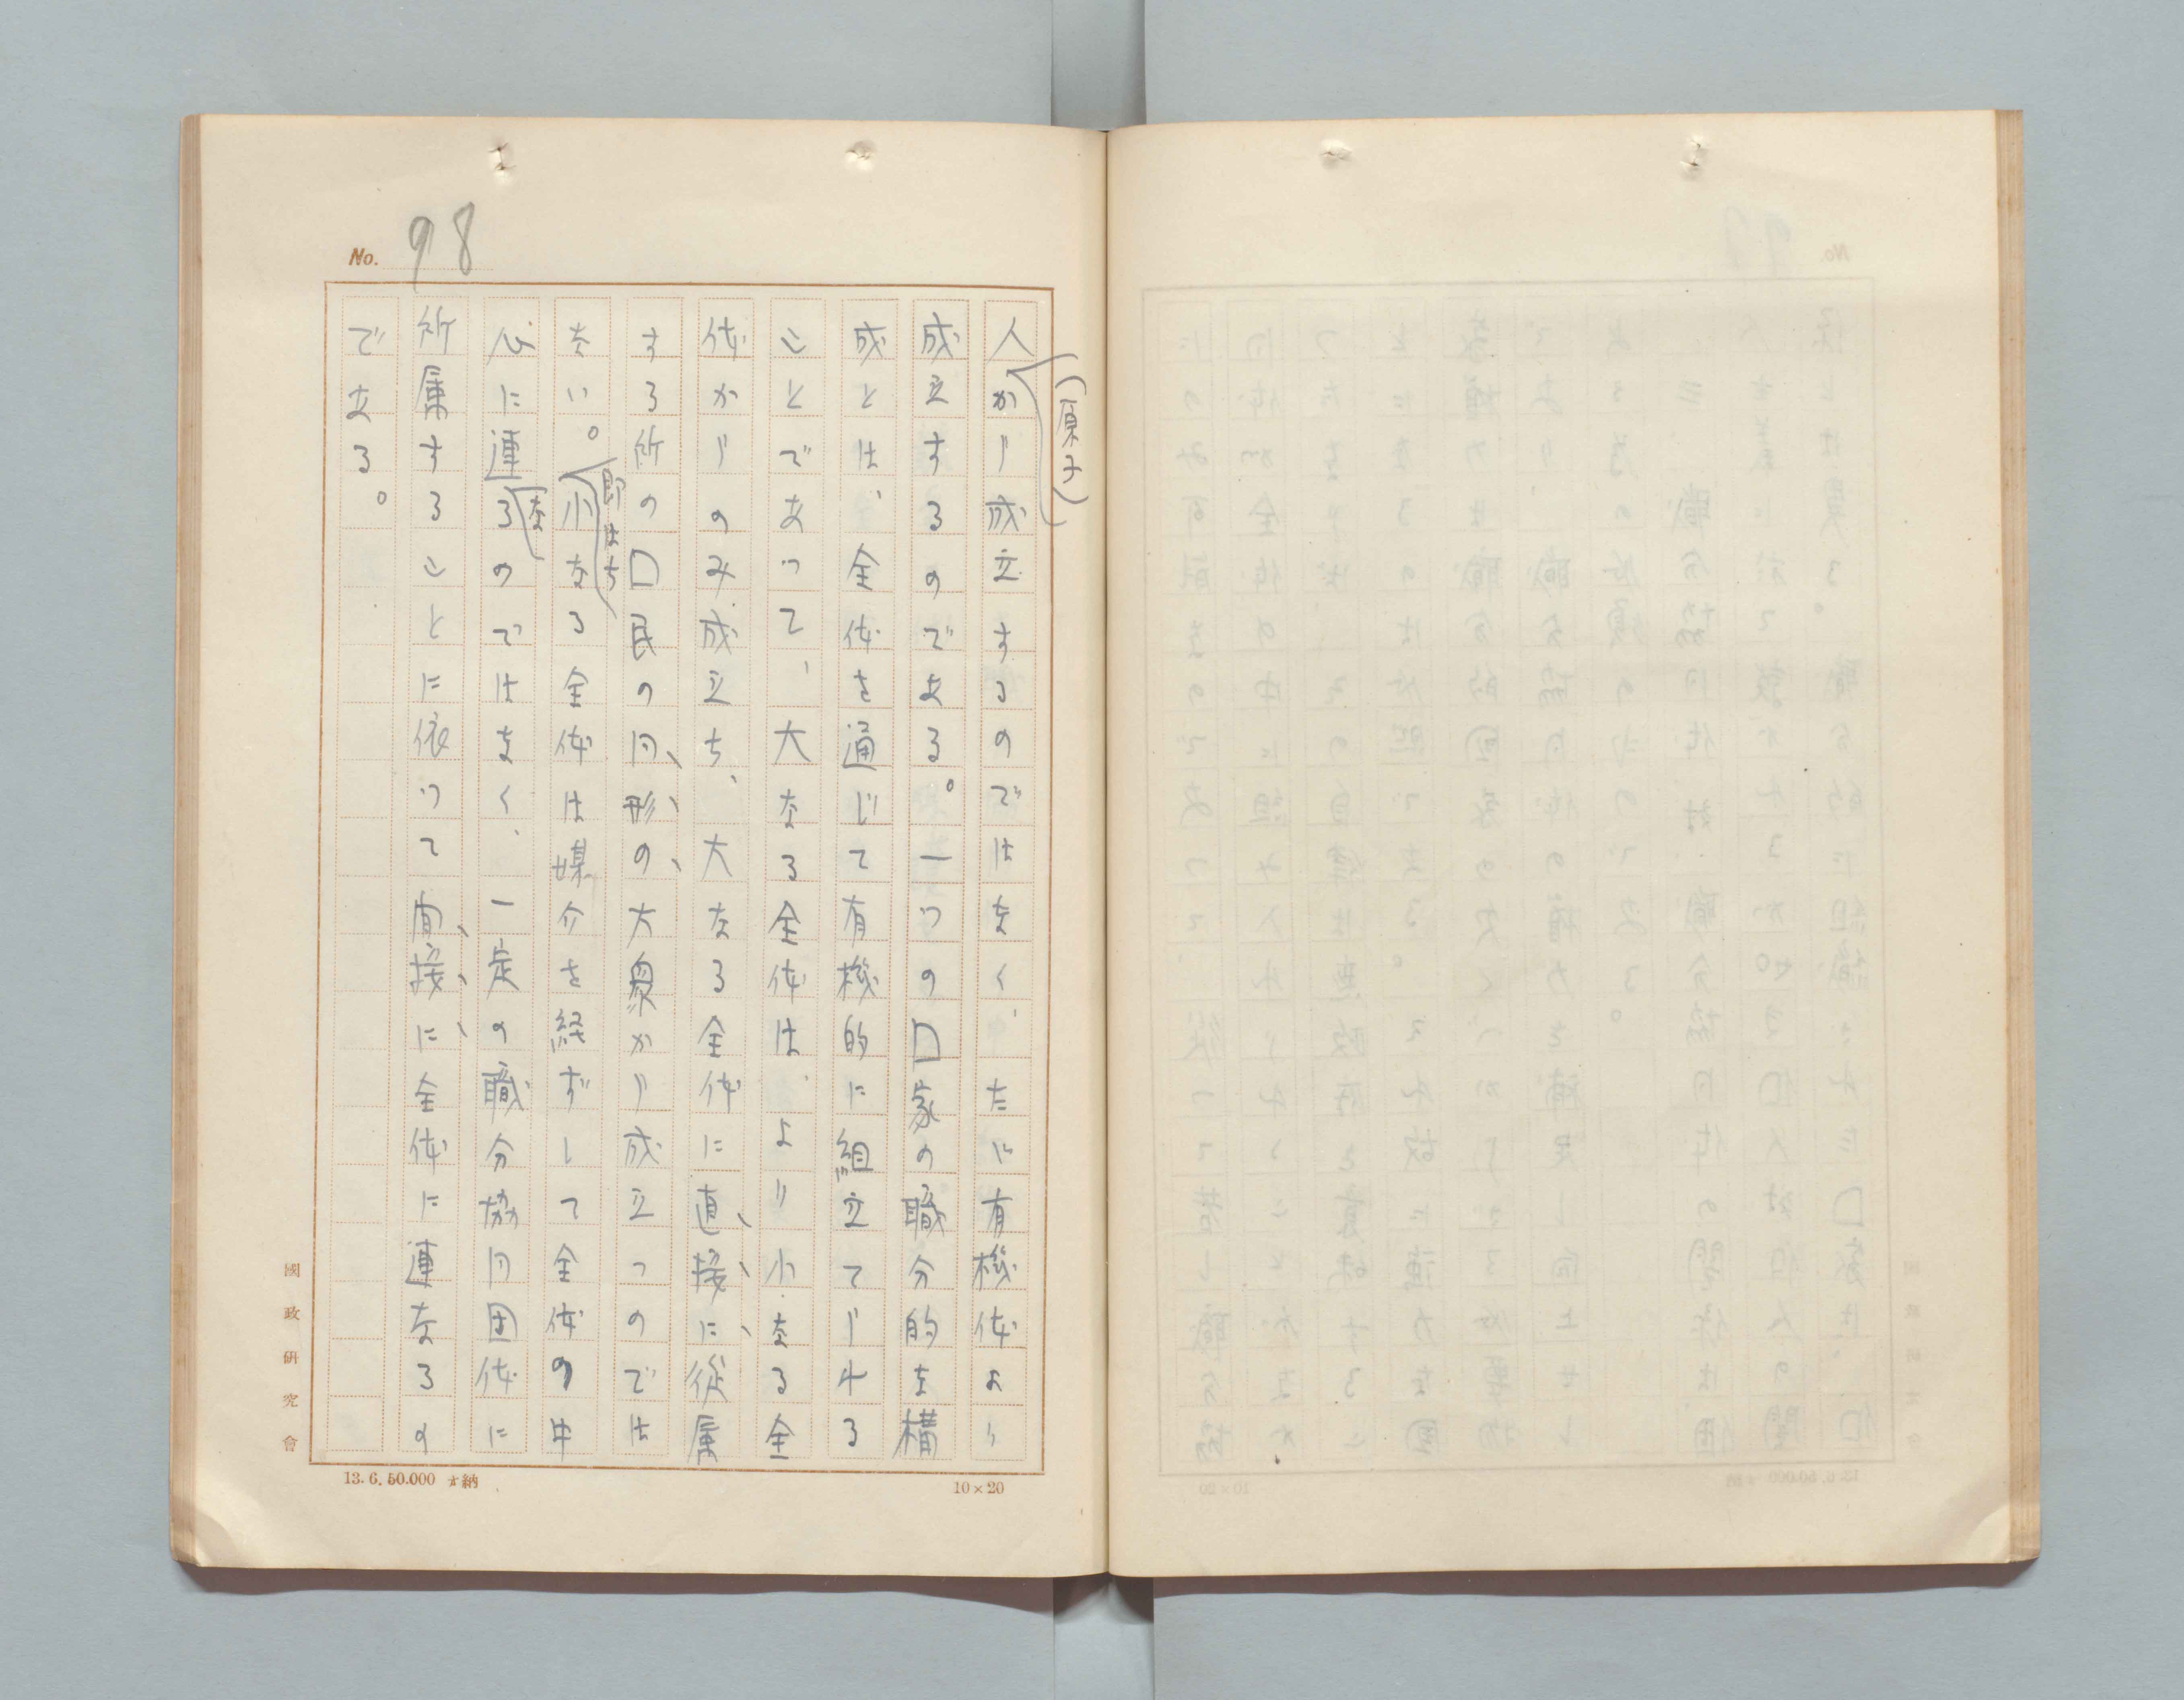 No. 98
人(原子)から成立するのではなく、たゞ有機体より
成立するのである。一つの囗家の職分的な構
成とは、全体を通じて有機的に組立てられる
ことであつて、大なる全体は、より小なる全
体からのみ成立ち、大なる全体に直接に従属
する所の囗民の同形の大衆から成立つのでは
ない。即はち小なる全体は媒介を経ずして全体の中
心に連なるのではなく、一定の職分協同団体に
所属することに依つて間接に全体に連なるの
である。
國政研究會
13.6.50.000 納
10×20